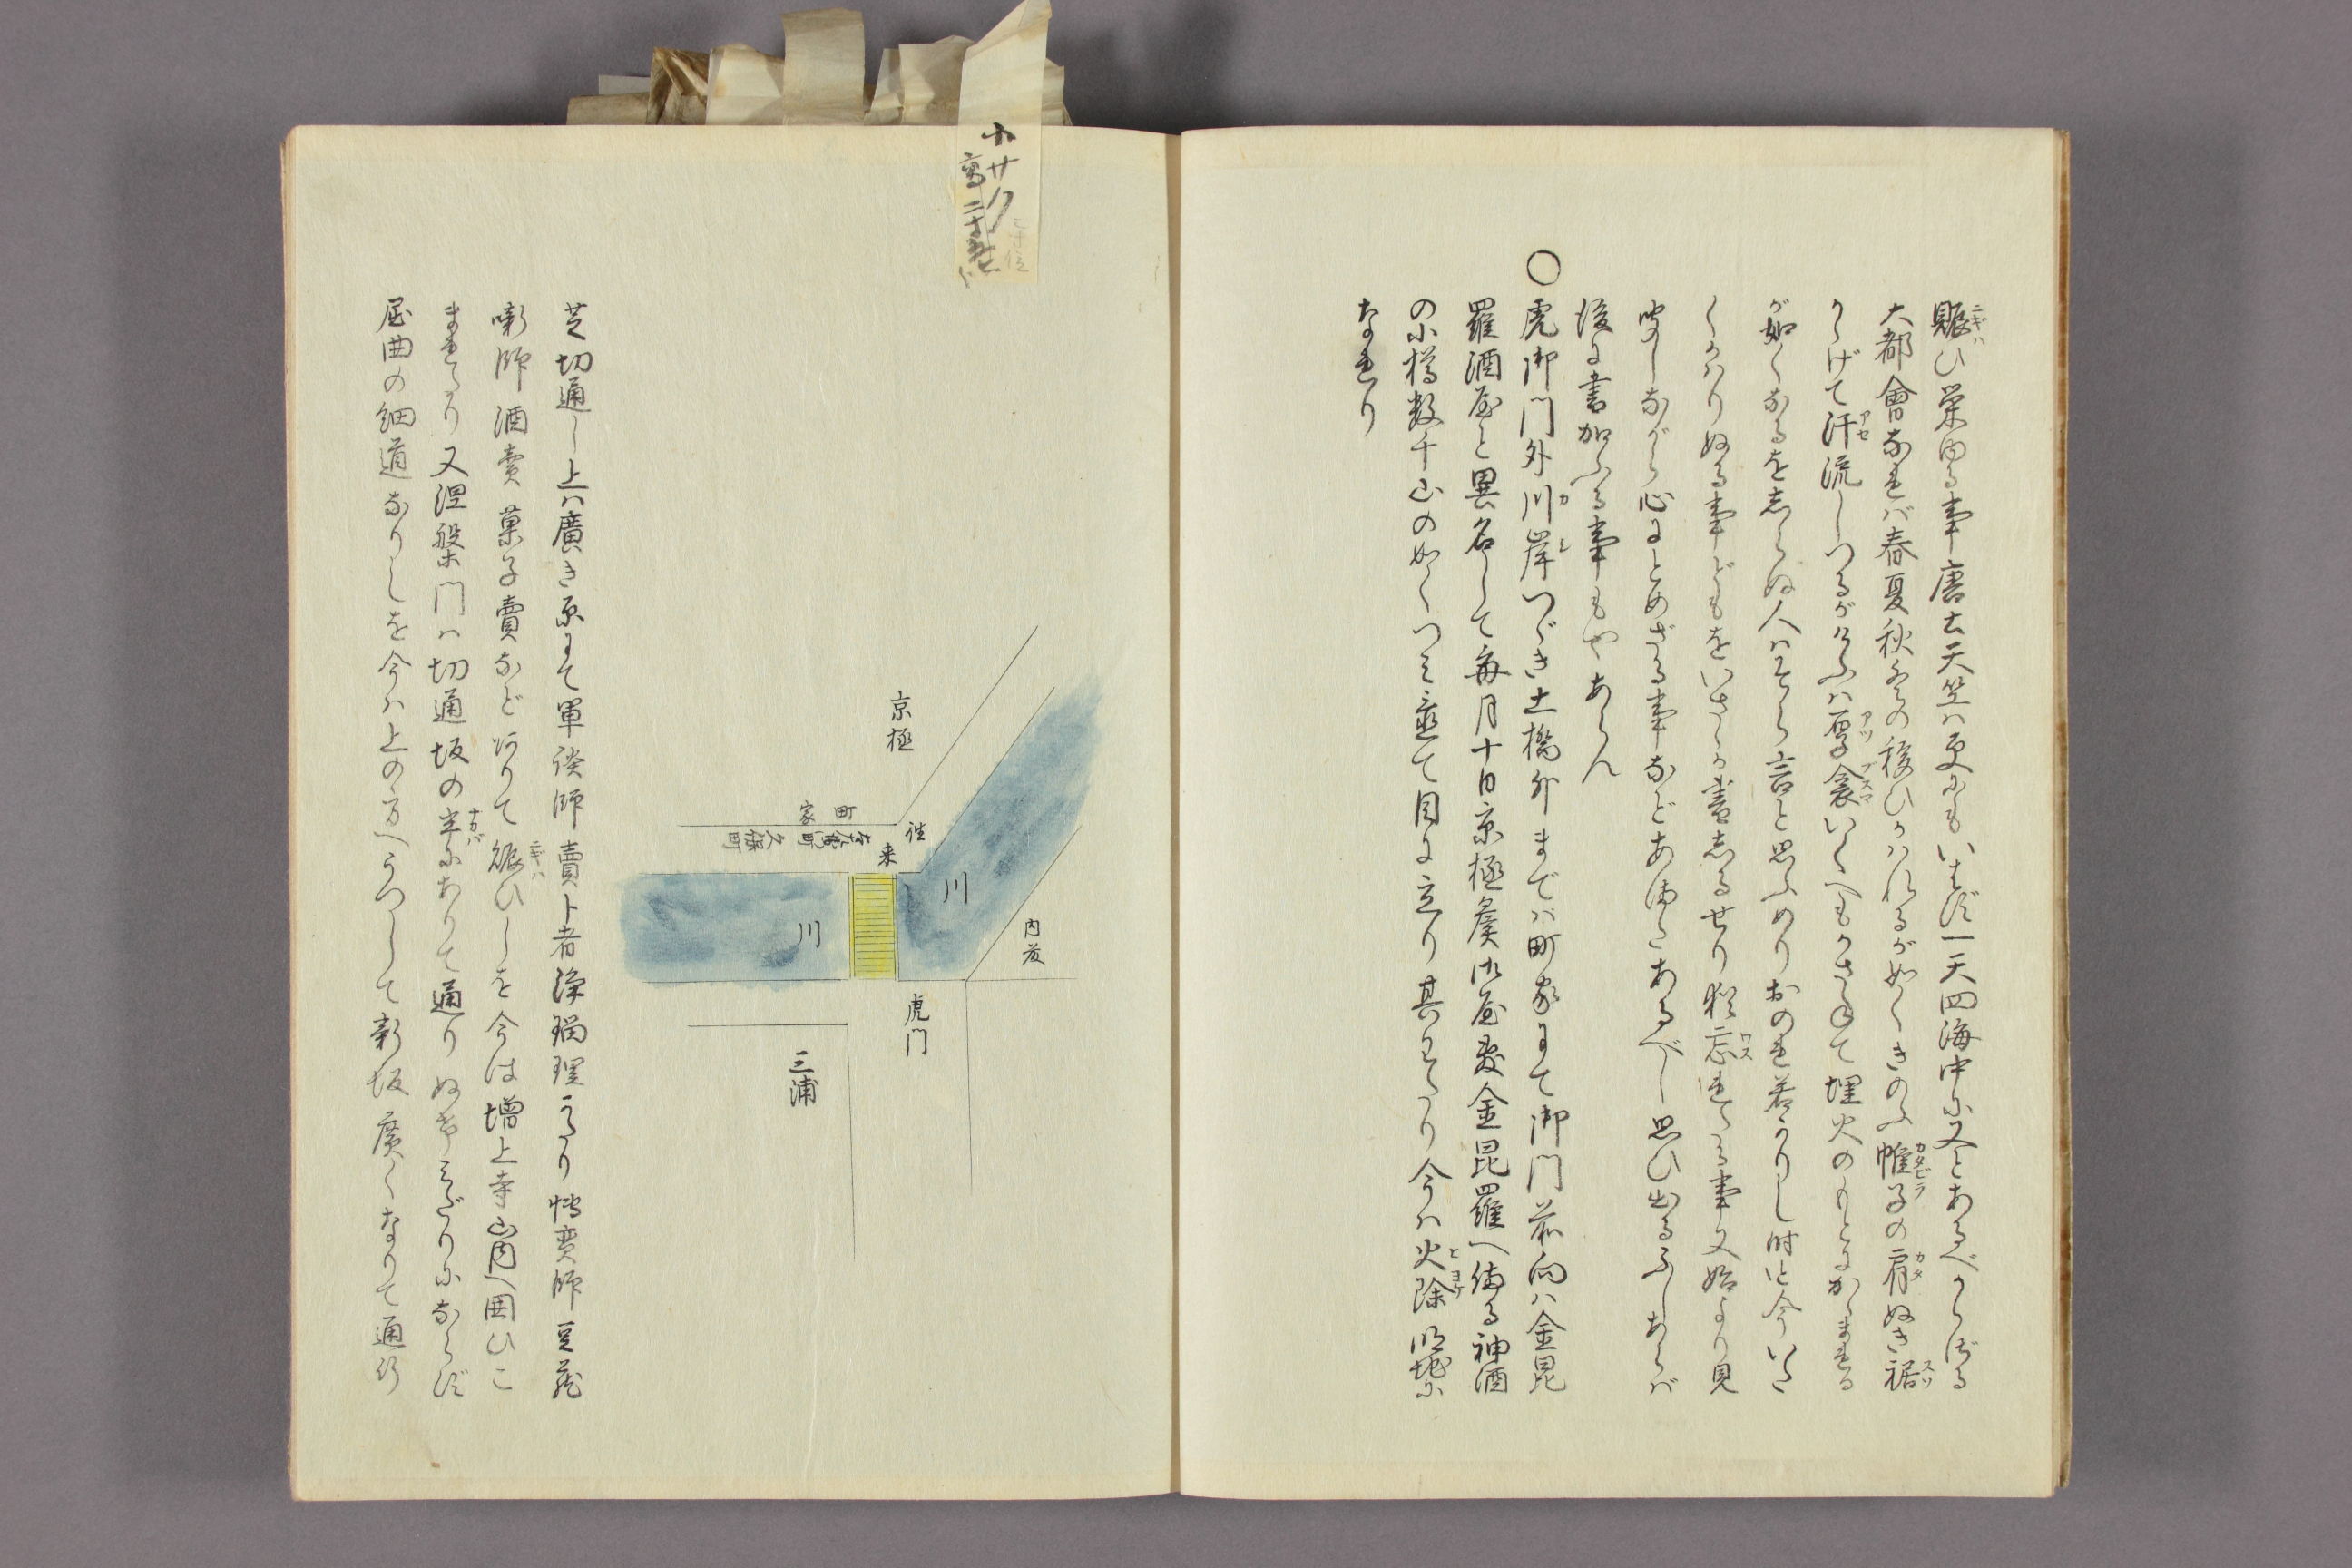 賑ひ栄ゆる事唐土天竺は更にもいはず一天四海中に又とあるべからざる
ニギハ
大都會なれバ春夏秋冬の移ひかはれるが如くきのふ帷子の肩ぬき裾
カタビラ
カタ
スソ
からげて汗流しつるがけふハ厚衾いくへもかさねて埋火のもとにかゞまれる
アセ
アツ
ブスマ
が如くなるを志らぬ人ハそら言と思ふめりおのれ若かりし時と今いた
くかハりぬる事どもをいさゝか書志るせり猶忘れたる事又始より見
ワス
聞しながら心にとめざる事などあまたあるべし思ひ出るふしあらバ
後に書加ふる事もやあらん
○虎御門外川岸つゞき土橋外までハ町家にて御門前向ハ金昆
カ
シ
羅酒屋と異名して毎月十日京極矦御屋敷金昆羅へ備る神酒
の小樽数千山の如くつミ並て目に立り其わたり今ハ火除明地に
ヒ
ヨケ
なれり
小サク
高二寸
京極
町家
久保町
往来
川
川
内藤
虎門
三浦
芝切通し上ハ廣き原にて軍談師賣卜者浄瑠理かたり博奕師豆蔵
噺師酒賣菓子賣など有りて賑ひしを今は増上寺山内へ囲ひこ
ニギハ
まれたり又涅槃門ハ切通坂の半にありて通りぬけミだりにならず
ナカバ
屈曲の細道なりしを今ハ上の方へうつして新坂廣くなりて通行